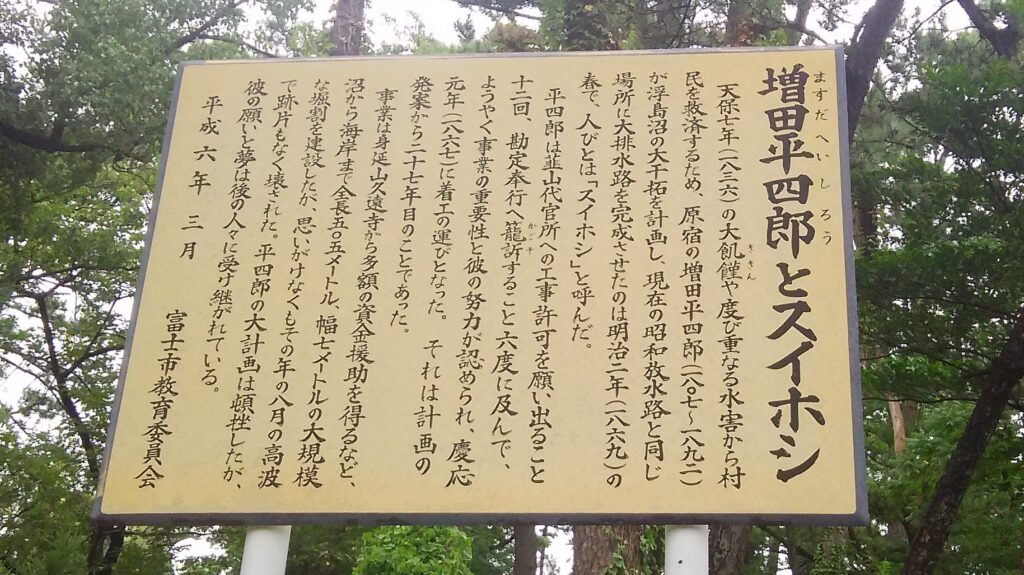 増田平四郎とスイホシ
ますだへいしろう
天保七年(一八三六)の大飢饉や度び重なる水害から村
ききん
民を救済するため、原宿の増田平四郎(一八〇七〜一八九二)
が浮島沼の大干拓を計画し、現在の昭和放水路と同じ
場所に大排水路を完成させたのは明治二年(一八六九)の
春で、人びとは「スイホシ」と呼んだ。
平四郎は韮山代官所への工事許可を願い出ること
十二回、勘定奉行へ籠訴すること六度に及んで、
かごそ
ようやく事業の重要性と彼の努力が認められ、慶応
元年(一八六七)に着工の運びとなった。それは計画の
発案から二十七年目のことであった。
事業は身延山久遠寺から多額の資金援助を得るなど、
沼から海岸まで全長五〇五メートル、幅七メートルの大規模
な堀割を建設したが、思いがけなくもその年の八月の高波
で跡片もなく壊された。平四郎の大計画は頓挫したが、
彼の願いと夢は後の人々に受け継がれている。
平成六年三月
富士市教育委員会